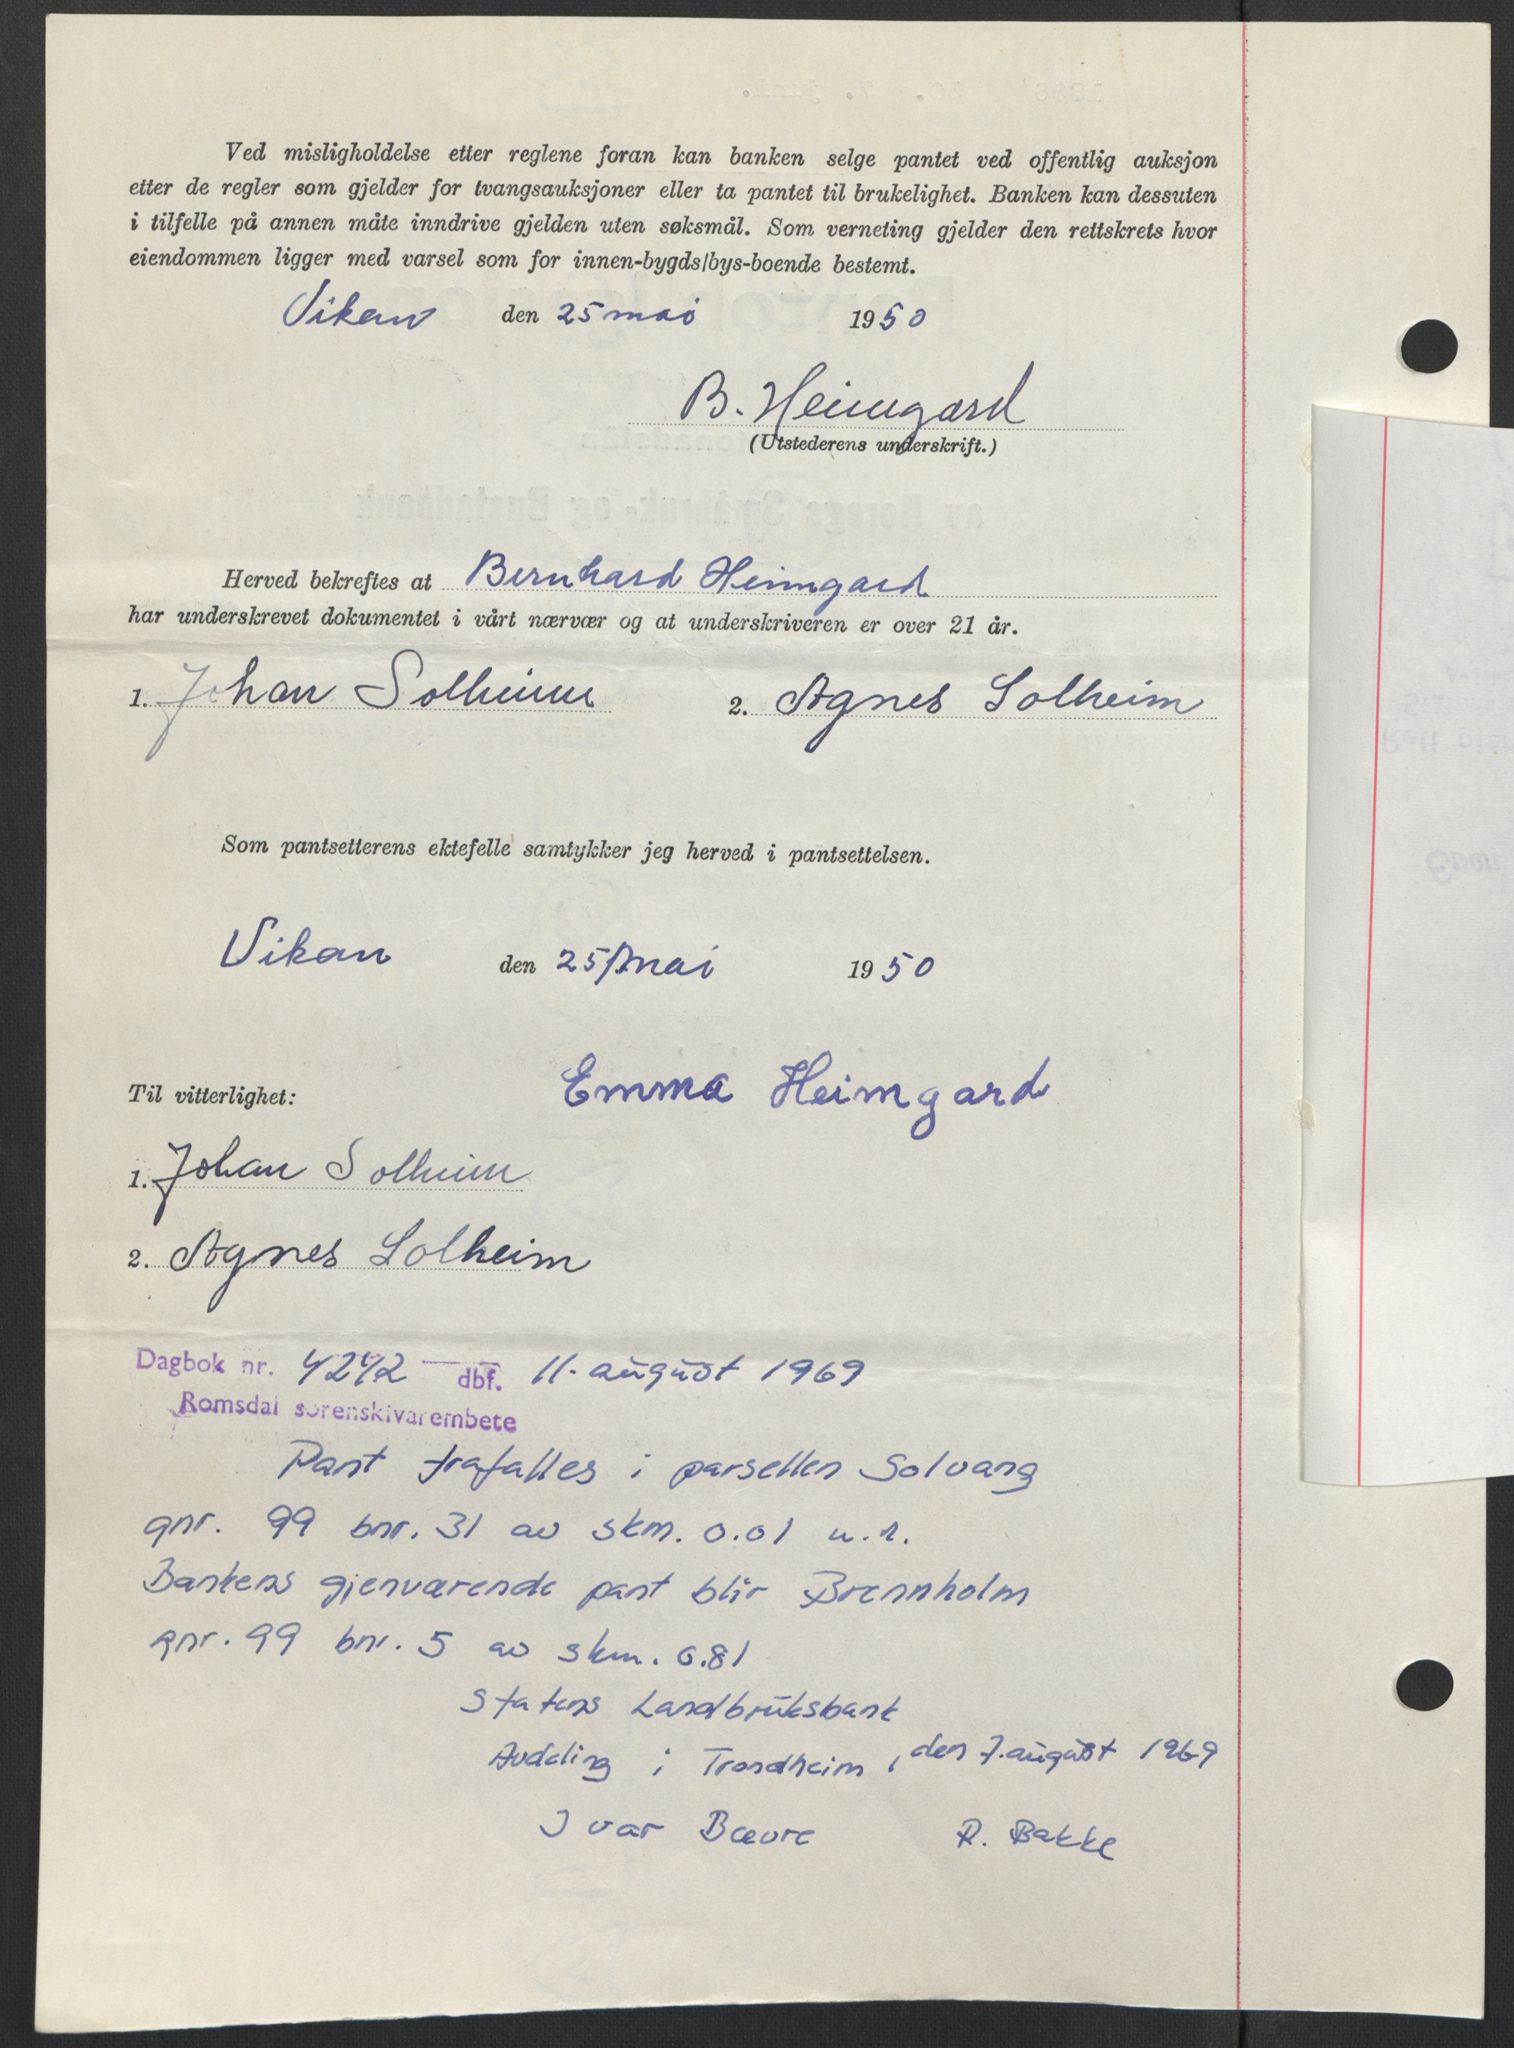 Ved misligholdelse etter reglene foran kan banken selge pantet ved offentlig auksjon
etter de regler som gjelder for tvangsauksjoner eller ta pantet til brukelighet. Banken kan dessuten
i tilfelle på annen måte inndrive gjelden uten søksmål. Som verneting gjelder den rettskrets hvor
eiendommen ligger med varsel som for innen-bygds/bys-boende bestemt.
Vikan den 25 mai 1950
B. Heimgard
(Utstederens underskrift.)
Herved bekreftes at Bernhard Heimgard
har underskrevet dokumentet i vårt nærvær og at underskriveren er over 21 år.
1. Johan Solheim 2. Agnes Solheim
Som pantsetterens ektefelle samtykker jeg herved i pantsettelsen.
Vikan den 25/mai 1950
Emma Heimgard
Til vitterlighet:
1. Johan Solheim
2. Agnes Solheim
Dagbok nr. 4242 dbf. 11. august 1969
Romsdal sorenskivarembete
Pant frafalles i parsellen Solvang
gnr. 99 bnr. 31 av skm. 0.01 u.n.
Bankens gjenværende pant blir Brennholm
gnr. 99 bnr. 5 av skm. 0.81
Statens Landbruksbank
Avdeling i Trondheim, den 7. august 1969
Ivar Bævre R. Bakke